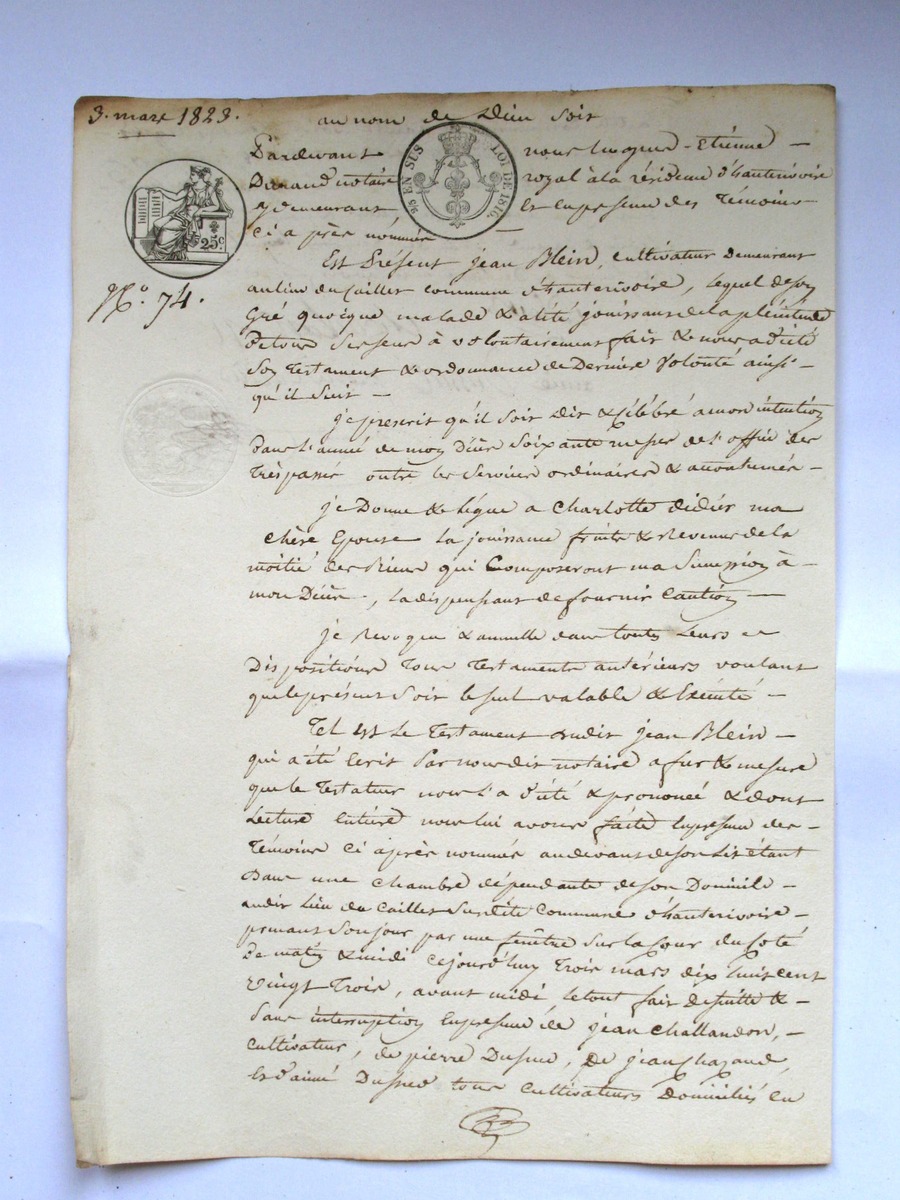 3. mars 1823.
au nom de Dieu soit
Pardevant nous Jacques-Etiénne
Durand notaire royal à la résidence d'hauterivoire
y demeurant et en présence des Témoins
ci a près nommés
25c.
95 EN SUS LOI DE 1816.
N°. 74.
Est Présent jean Blein, cultivateur demeurant
au lieu du Caillet commune d'hauterivoire, lequel de son
Gré quoique malade & alité jouissant de la plénitude
de tous ses sens à volontairement fait & nous a dicté
son Testament & ordonnance de Dernière Volonté ainsi
qu'il suit
je prescrit qu'il soit Dit & célébré a mon intention
dans l'année de mon Décès soixante messes de l'office des
Trépassés outre les services ordinaires & accoutumés
je Donne & lègue a Charlotte didiér ma
chère Epouse la jouissance fruits & Revenus de la
moitié des Biens qui Composeront ma Succession à
mon Décès, la dispensant de fournir Caution
je Revoque & annulle dans toutes leurs
Dispositions Tous Testaments antérieurs voulant
que le présent soit le seul valable & Exécuté
Tel est le Testament dudit jean Blein
qui a été Ecrit Par nous dit notaire a fur & mesure
que le Testateur nous l'a dicté & prononcé & dont
Lecture Entière nous lui avons faite En présence des
Témoins ci après nommés au devant de son Lit étant
Dans une chambre dépendante de son Domicile
audit lieu du Caillet susdite Commune d'hauterivoire
prenant son jour par une fenêtre sur la Cour du Coté
De matin & midi Cejourd'huy Trois mars dix huit cent
Vingt Trois, avant midi, le tout fait de suitte &
Sans interruption En présence de jean Challandon,
cultivateur, de pierre Dussud, de jean Chazaud,
Et d'aimé Dussud tous cultivateurs Domiciliés en